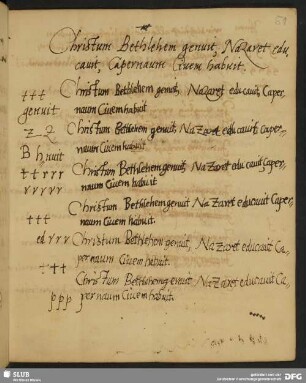 Christum Bethlehem genuit, Nazaret edu,
cauit, Capernaum Ciuem habuit.
t t t Christum Bethlehem genuit, Nazaret educauit, Caper
genuit naum Ciuem habuit
z 2 Christum Bethlehem genuit, Nazaret educauit, Caper-
B h, nuit naum Ciuem habuit
t t r r r Christum Bethlehem genuit, Nazaret educauit Caper
v v v v v naum Ciuem habuit.
Christum Bethlehem genuit Nazaret educauit Caper
t t t naum Ciuem habuit.
ed r r r Christum Bethlehem genuit, Nazaret educauit Ca,
per naum Ciuem habuit.
t t Christum Bethlehem genuit Nazaret educauit Ca,
p p p per naum Ciuem habuit.
SLUB
DFG